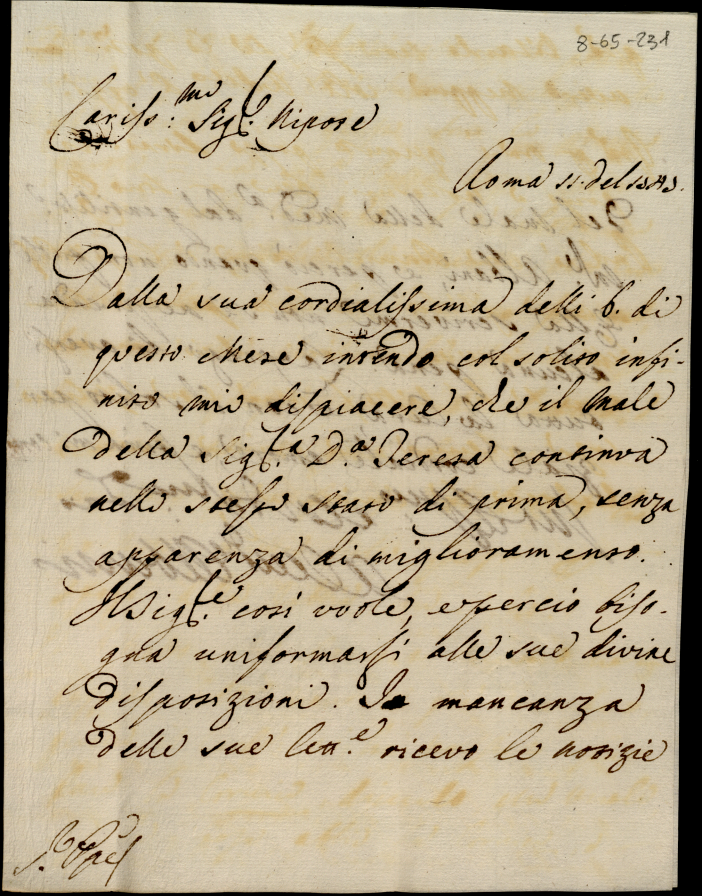 8-65-231
Cariss.mo Sig.e Nipote
Roma 11. del 1803.
Dalla sua cordialissima delli 6. di
questo Mese intendo col solito infi-
nito mio dispiacere, che il Male
della Sig.a D.a Teresa continua
nello stesso stato di prima, senza
apparenza di miglioramento.
Il Sig.e così vuole, e perciò biso-
gna uniformarsi alle sue divine
disposizioni. In mancanza
delle sue lett.e ricevo le notizie